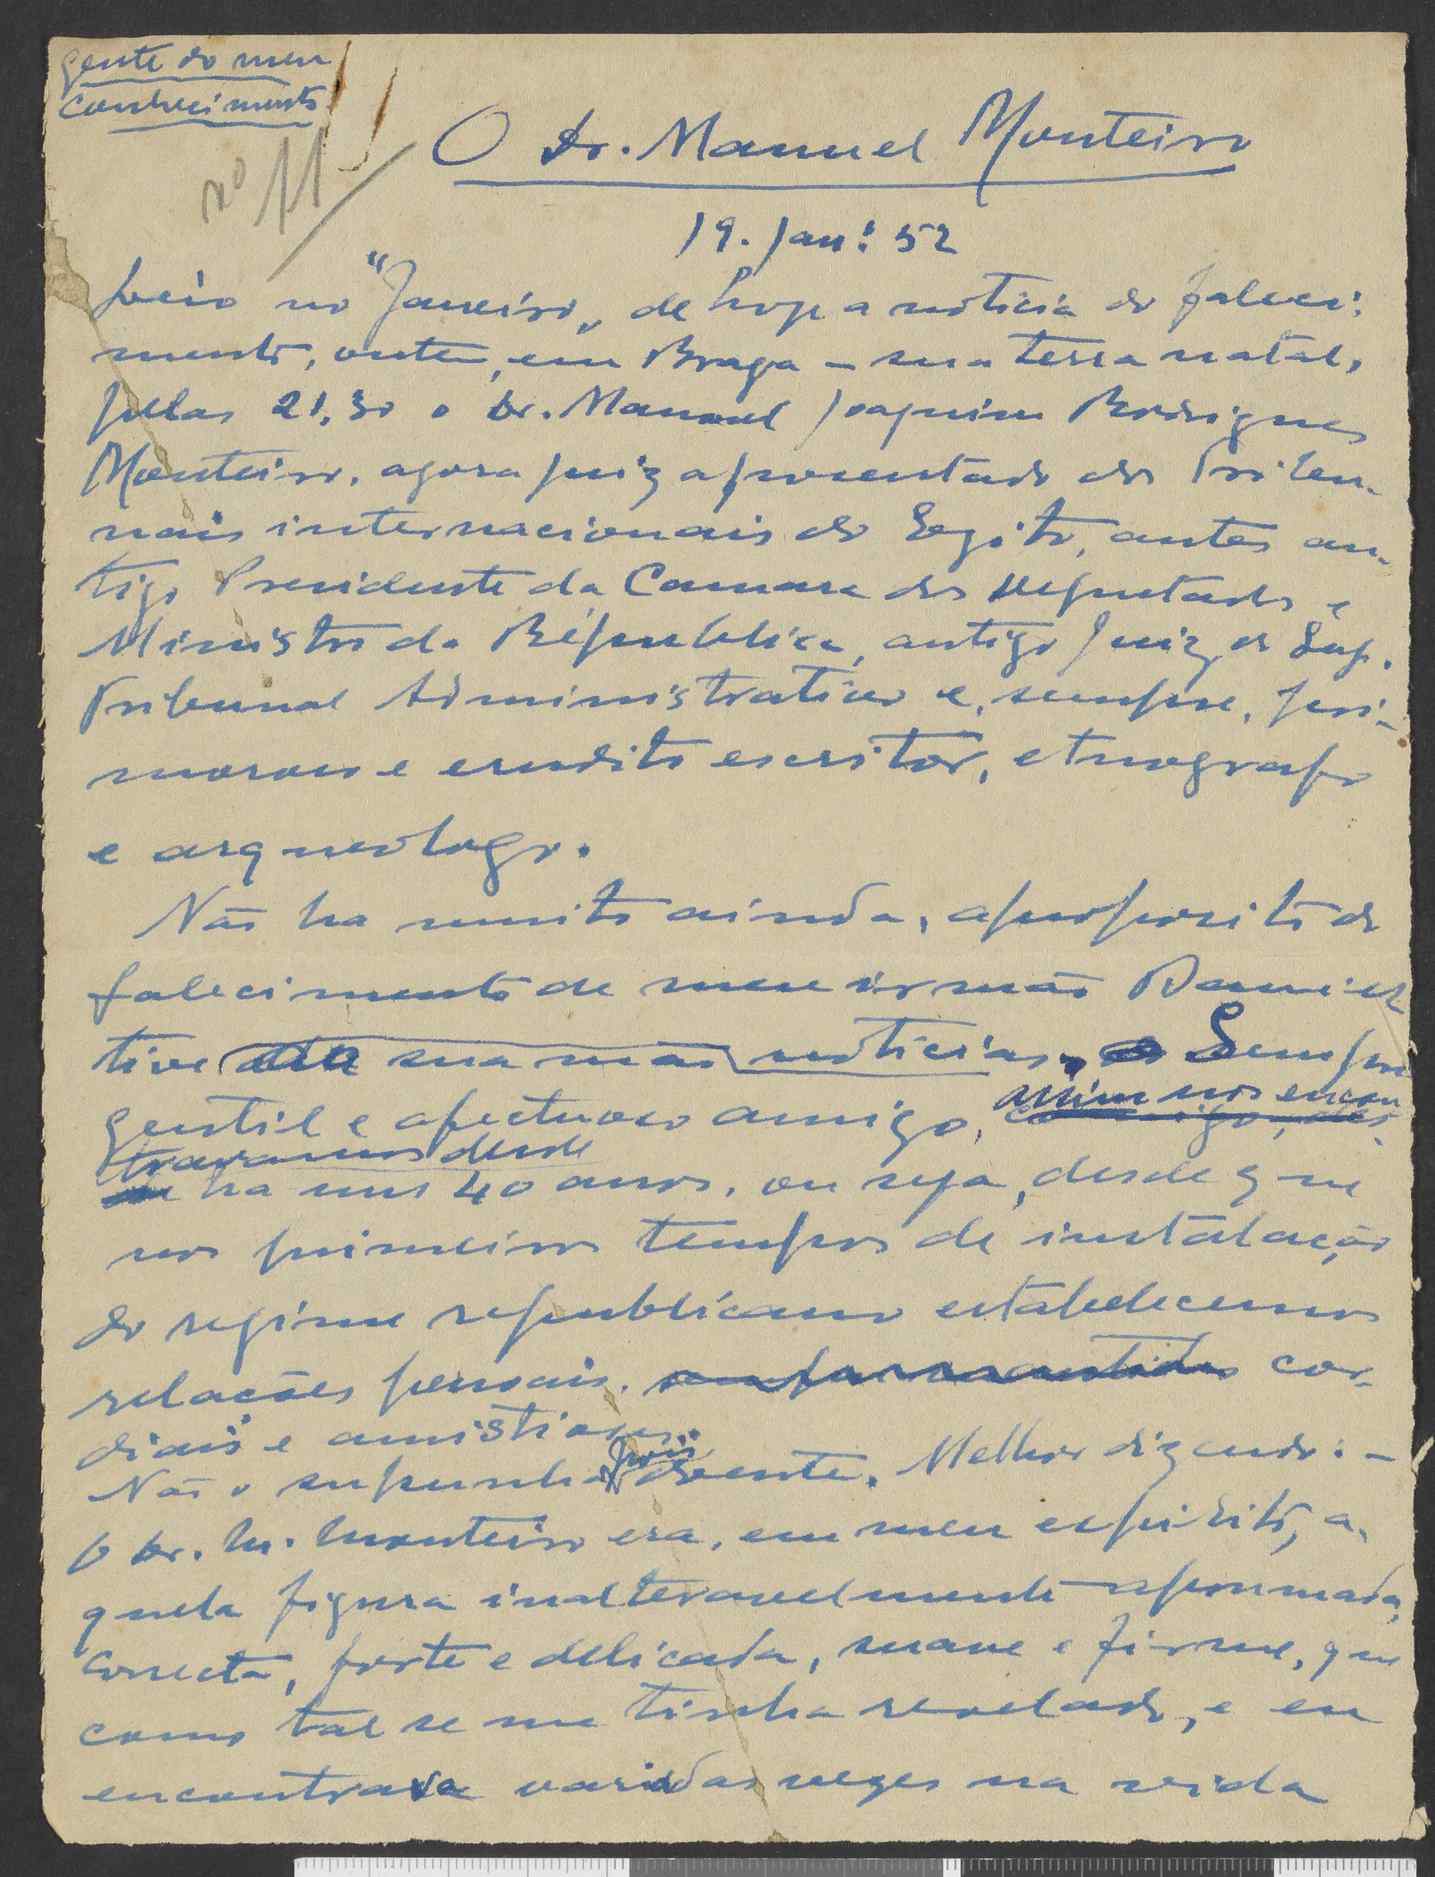 gente do meu
conhecimento
nº 11
O Dr. Manuel Monteiro
19. Jan: 52
Leio no "Janeiro" de hoje a noticia do faleci-
mento, ontem, em Braga - sua terra natal,
pelas 21,30 o Dr. Manuel Joaquim Rodrigues
Monteiro. agora juiz aposentado dos Tribu-
nais internacionais do Egito, antes an-
tigo Presidente da Camara dos Deputados e
Ministro da Républica, antigo Juiz do Sup.
Tribunal Administrativo e, sempre, pri-
moroso e erudito escritor, etnografo
e arqueologo.
Não ha muito ainda, a proposito do
falecimento de meu irmão Daniel
tive da sua mão noticias. Sempre
gentil e afectuoso amigo, assim nos encon
comigo, des-
travamos desde
ha uns 40 anos, ou seja, desde que
nos primeiros tempos de instalação
do regime republicano estabelecemos
relações pessoais. cor-
diais e amistiosas.
Não o supunha pois doente. Melhor dizendo: -
O Dr. M. Monteiro era, em meu espirito, a-
quela figura inalteravelmente aprumada,
correcta, forte e delicada, suave e firme, que
como tal se me tinha revelado, e eu
encontrava variadas vezes na vida